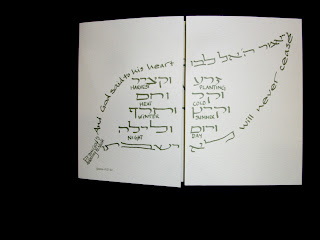 And God said to his heart
ויאמר ה׳ אל לבו
זרע וקציר
PLANTING HARVEST
וקר וחם
COLD HEAT
וקיץ וחרף
SUMMER WINTER
ויום ולילה
DAY NIGHT
לא ישבתו
will never cease